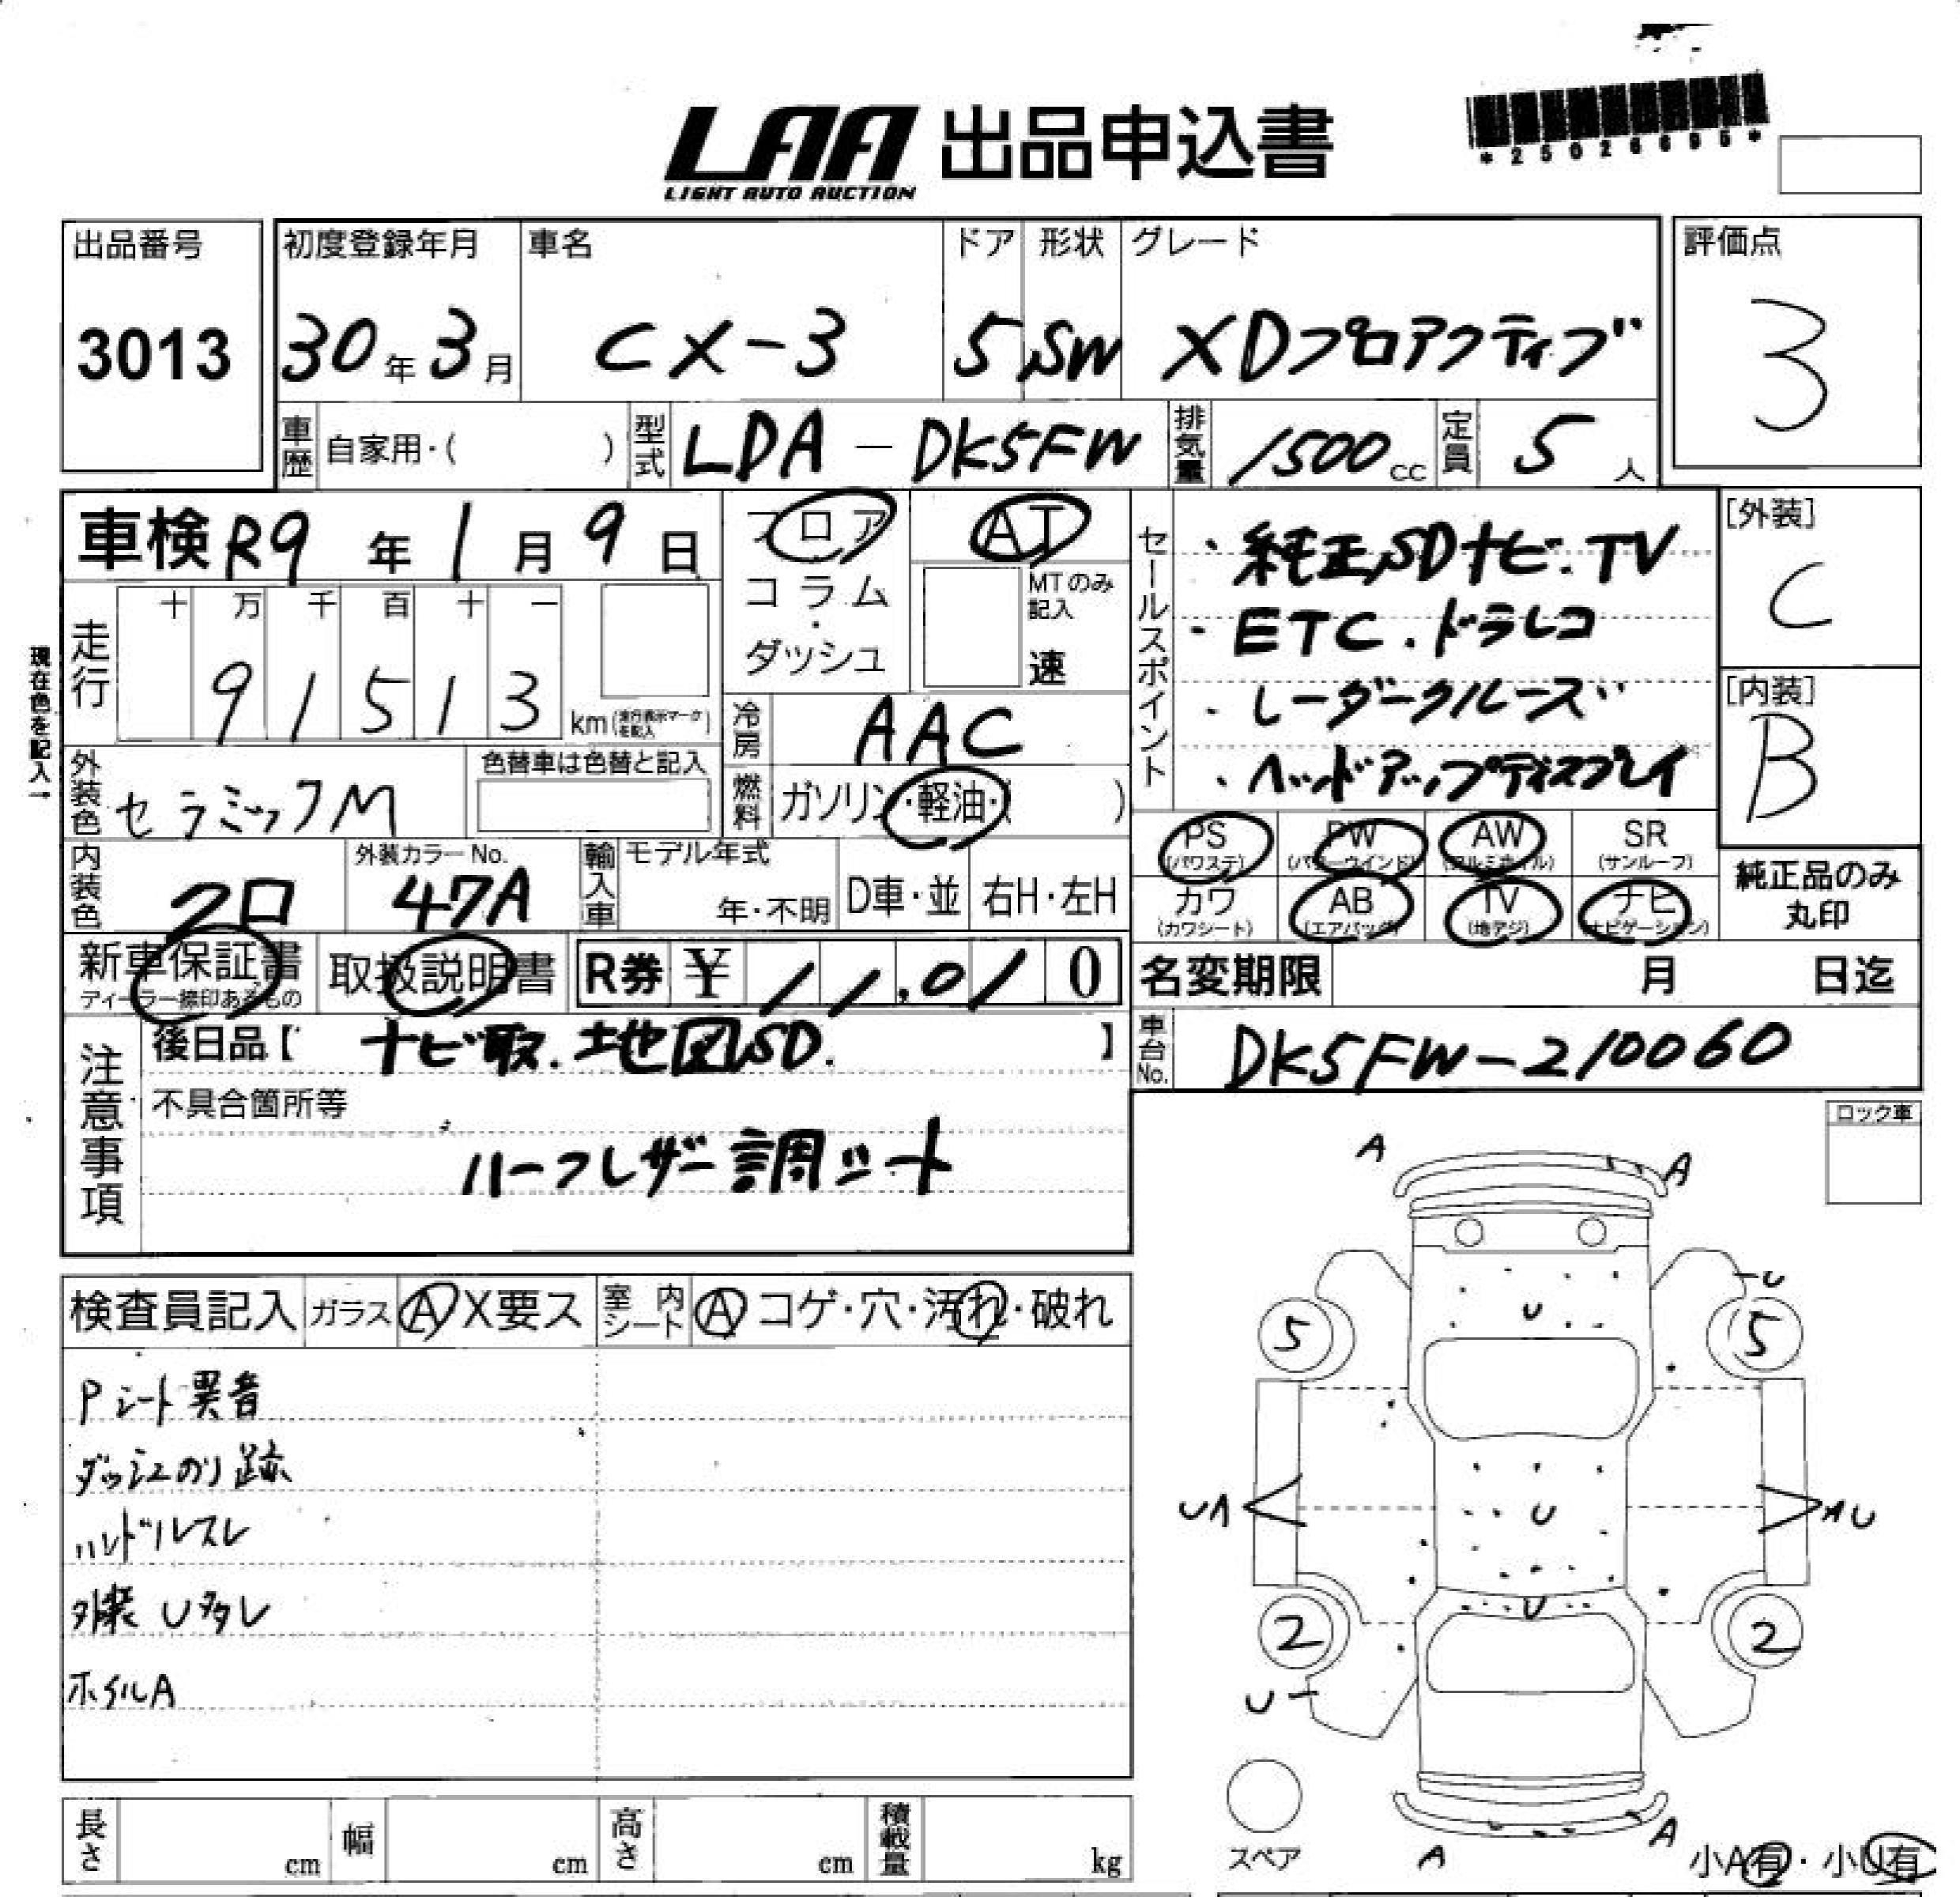 LAA 出品申込書
LIGHT AUTO AUCTION
*25026695*
出品番号 初度登録年月 車名 ドア 形状 グレード 評価点
3013 30年3月 CX-3 5 SW XDプロアクティブ 3
車歴 自家用・( ) 型式 LDA-DK5FW 排気量 1500cc 定員 5人
車検 R9年1月9日 フロア AT
コラム・ MTのみ記入
ダッシュ 速
走行 十 万 千 百 十 一
91513 km(走行表示マークを記入)
現在色を記入→
冷房 AAC
外装色 セラミックM 色替車は色替と記入
燃料 ガソリン・軽油・( )
内装色 クロ 外装カラーNo. 47A 輸入車 モデル年式 年・不明 D車・並 右H・左H
セールスポイント
・純正SDナビ.TV
・ETC.ドラレコ
・レーダークルーズ
・ヘッドアップディスプレイ
[外装]
C
[内装]
B
PS (パワステ) PW (パワーウインド) AW (アルミホイル) SR (サンルーフ)
カワ (カワシート) AB (エアバッグ) TV (地デジ) ナビ (ナビゲーション)
純正品のみ
丸印
新車保証書 取扱説明書 R券 ¥ 11,010
ディーラー捺印あるもの
名変期限 月 日迄
注意事項
後日品【 ナビ取.地図SD. 】
車台No. DK5FW-210060
不具合箇所等
ハーフレザー調シート
ロック車
検査員記入 ガラス A X要ス 室内シート A コゲ・穴・汚れ・破れ
Pシート異音
ダッシュのり跡
ハンドルスレ
外装 U多シ
ホイルA
A A
U
U
5 5
U
UA AU
U
2 2
U
スペア
A A
小A有・小U有
長さ cm 幅 cm 高さ cm 積載量 kg